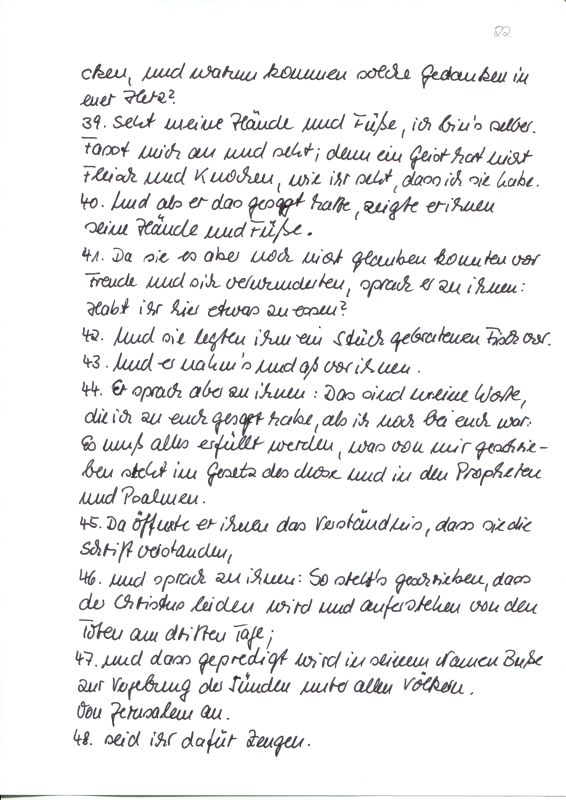 82
cken, und warum kommen solche Gedanken in
euer Herz?
39. Seht meine Hände und Füße, ich bin's selber.
Fasst mich an und seht; denn ein Geist hat nicht
Fleisch und Knochen, wie ihr seht, dass ich sie habe.
40. Und als er das gesagt hatte, zeigte er ihnen
seine Hände und Füße.
41. Da sie es aber noch nicht glauben konnten vor
Freude und sich verwunderten, sprach er zu ihnen:
Habt ihr hier etwas zu essen?
42. Und sie legten ihm ein Stück gebratenen Fisch vor.
43. Und er nahm's und aß vor ihnen.
44. Er sprach aber zu ihnen: Das sind meine Worte,
die ich zu euch gesagt habe, als ich noch bei euch war:
Es muß alles erfüllt werden, was von mir geschrie-
ben steht im Gesetz des Mose und in den Propheten
und Psalmen.
45. Da öffnete er ihnen das Verständnis, dass sie die
Schrift verstanden,
46. und sprach zu ihnen: So steht's geschrieben, dass
der Christus leiden wird und auferstehen von den
Toten am dritten Tage;
47. und dass gepredigt wird in seinem Namen Buße
zur Vergebung der Sünden unter allen Völkern.
Von Jerusalem an.
48. seid ihr dafür Zeugen.